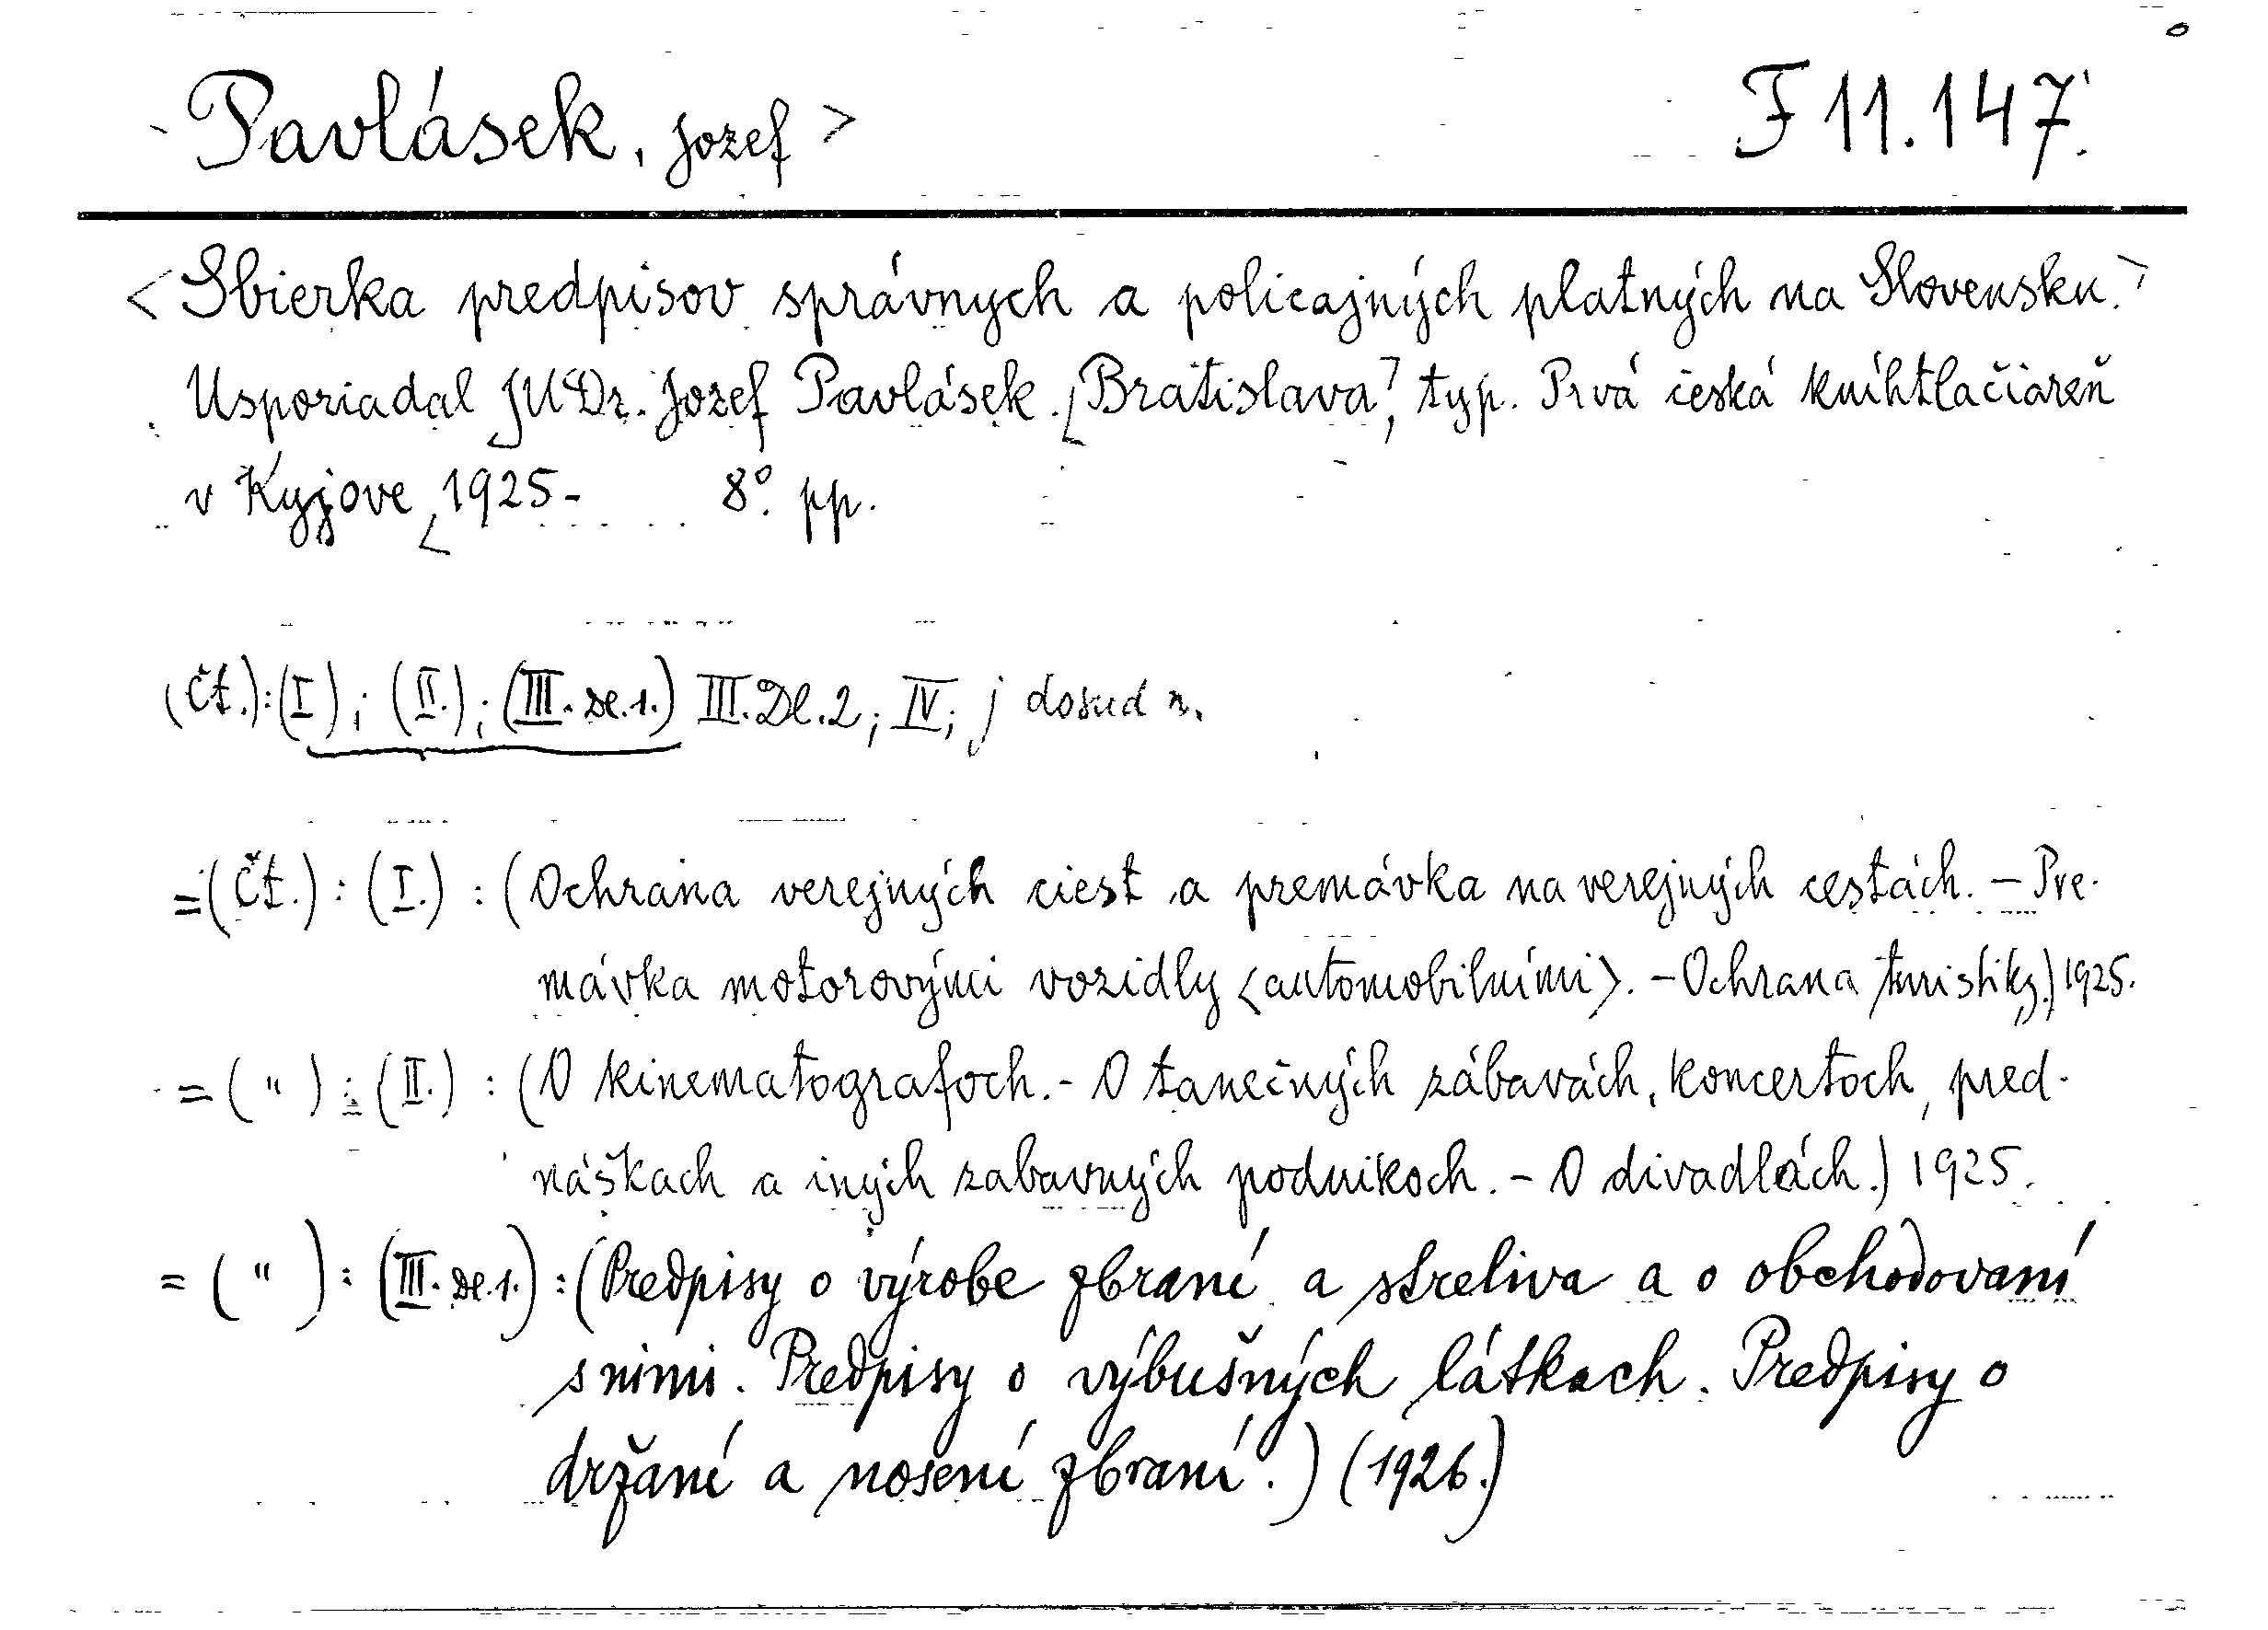 Pavlásek, Jozef > F 11.147.
<Sbierka predpisov správnych a policajných platných na Slovensku.>
Usporiadal JUDr. Jozef Pavlásek. [Bratislava], typ. Prvá česká kníhtlačiareň
v Kyjove 1925- 8° pp.
(Čt.):(I); (II.); (III. Dl.1.) III. Dl.2; IV; j dosud n.
=(Čt.) : (I.) : (Ochrana verejných ciest a premávka na verejných cestách. – Pre-
mávka motorovými vozidly <automobilními>. – Ochrana turistiky.) 1925.
= ( " ) : (II.) : (O kinematografoch. - O tanečných zábavách, koncertoch, pred-
náškach a iných zabavných podnikoch. - O divadlách.) 1925.
= ( " ) : (III. Dl.1.) : (Predpisy o výrobe zbraní a streliva a o obchodovaní
s nimi. Predpisy o výbušných látkach. Predpisy o
držaní a nosení zbraní.) (1926.)